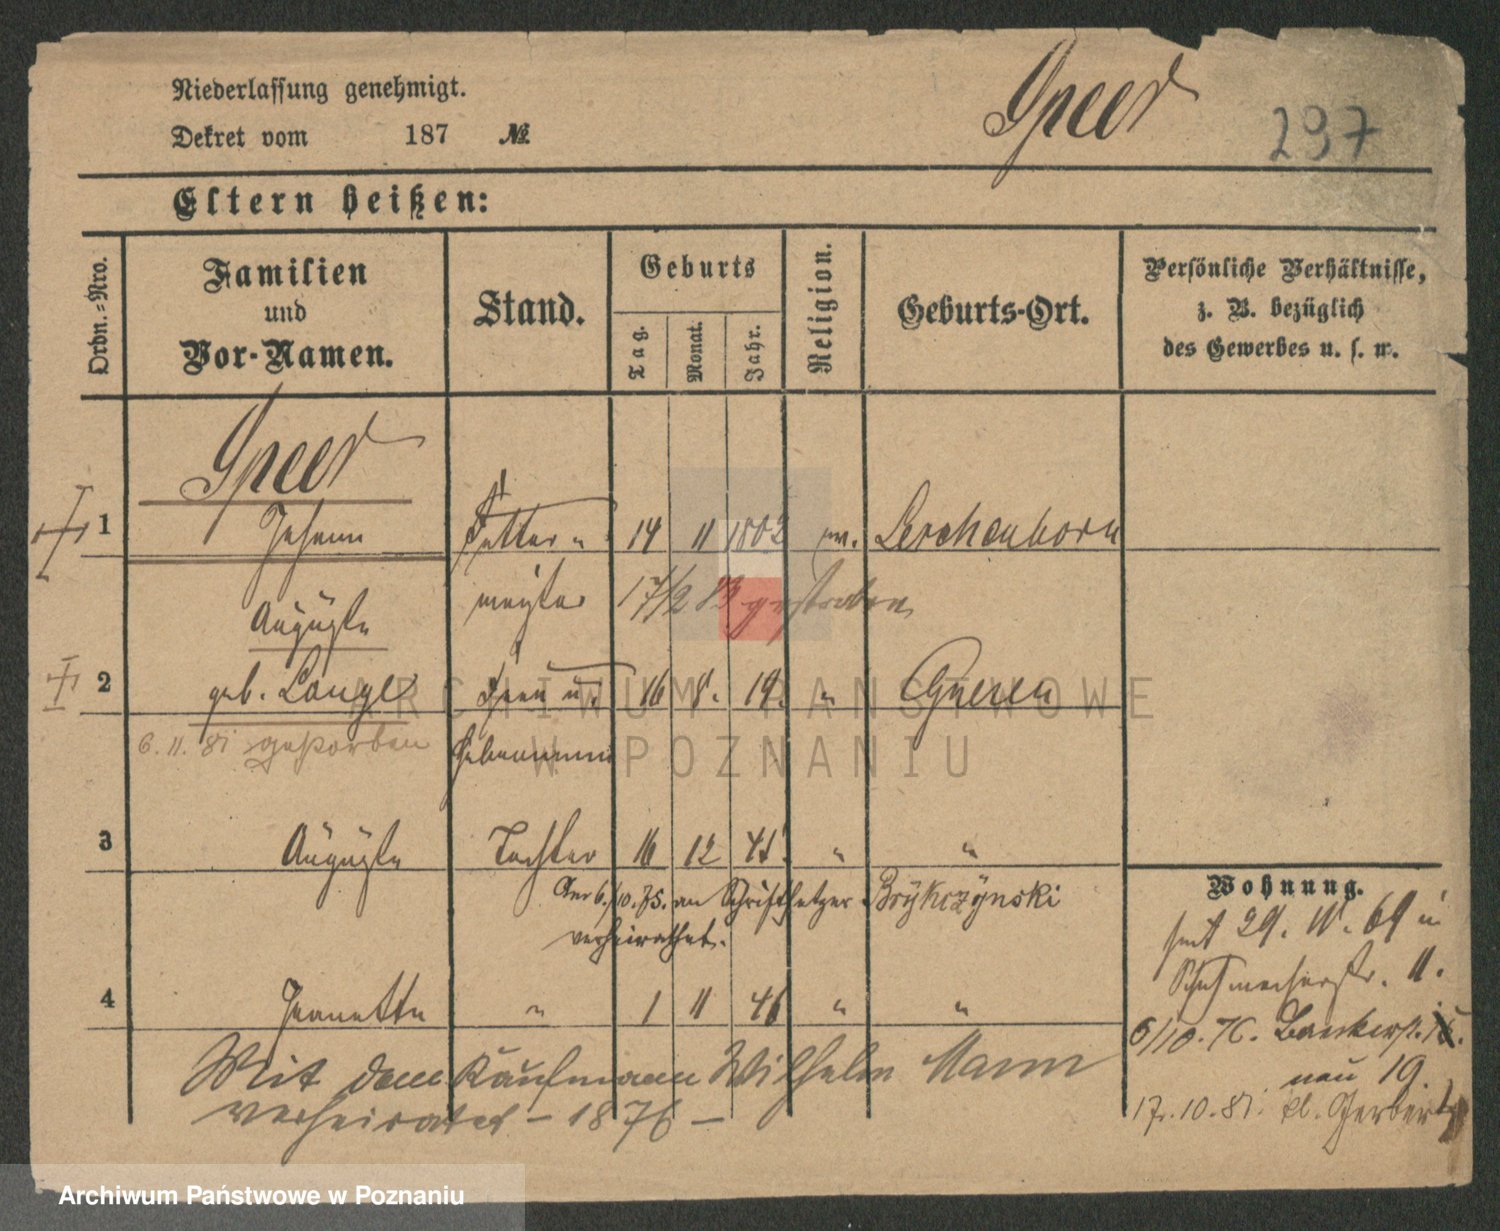 Niederlassung genehmigt.
Speer
297
Dekret vom 187 №
Eltern heißen:
Ordn.-Nro.
Familien
und
Vor-Namen.
Stand.
Geburts
Tag.
Monat.
Jahr.
Religion.
Geburts-Ort.
Persönliche Verhältnisse,
z. B. bezüglich
des Gewerbes u. s. w.
Speer
1 Johann 14 11 1802 Lerchenborn
meister 17/2 83 gestorben
Auguste
2 geb. Lange Frau u. 16 8. 19. " Gnesen
6. 11. 81 gestorben Hebamme
3 Auguste Tochter 16 12 45. " "
Am 6./10. 75. an Schriftsetzer Brykczynski
verheirathet.
4 Jeanette " 1 11 46 " "
Mit dem Kaufmann Wilhelm Mann
verheiratet – 1876 –
Wohnung.
seit 29. IV. 69 in
Schuhmacherstr. 11.
5/10. 76. Bäckerst.
neu 19.
17. 10. 81. kl. Gerber
ARCHIWUM PAŃSTWOWE
W POZNANIU
Archiwum Państwowe w Poznaniu